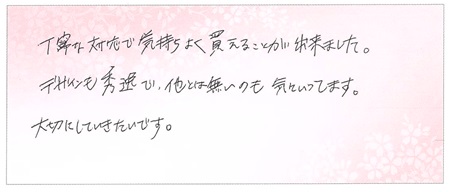 丁寧な対応で気持ちよく買えることが出来ました。
デザインも秀逸で、他とは無いのも気に入ってます。
大切にしていきたいです。